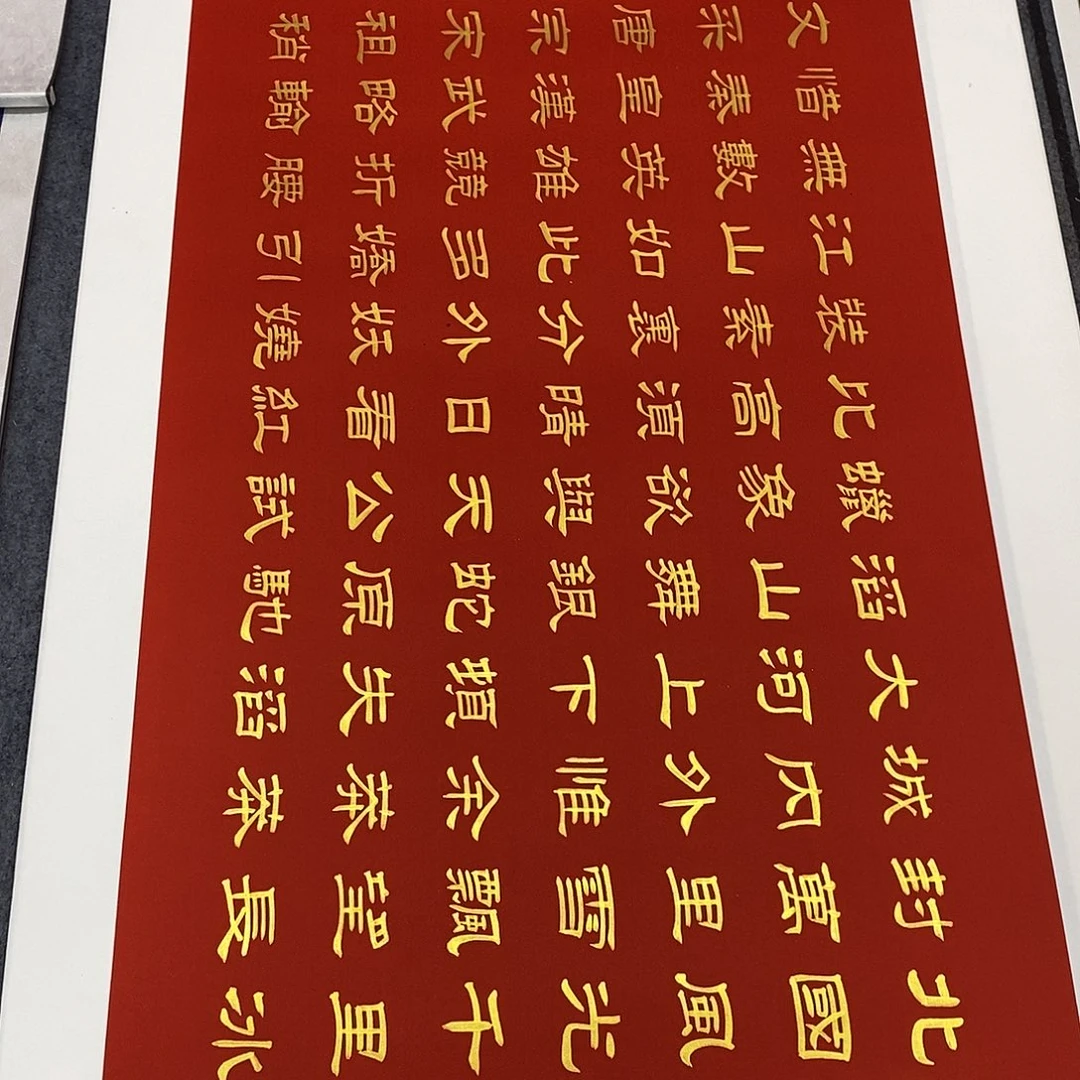 北國風光千里冰
封萬里雪飄望長
城内外惟余莽莽
大河上下頓失滔
滔山舞銀蛇原馳
蠟象欲與天公試
比高須晴日看紅
裝素裹分外妖嬈
江山如此多嬌引
無數英雄競折腰
惜秦皇漢武略輸
文采唐宗宋祖稍